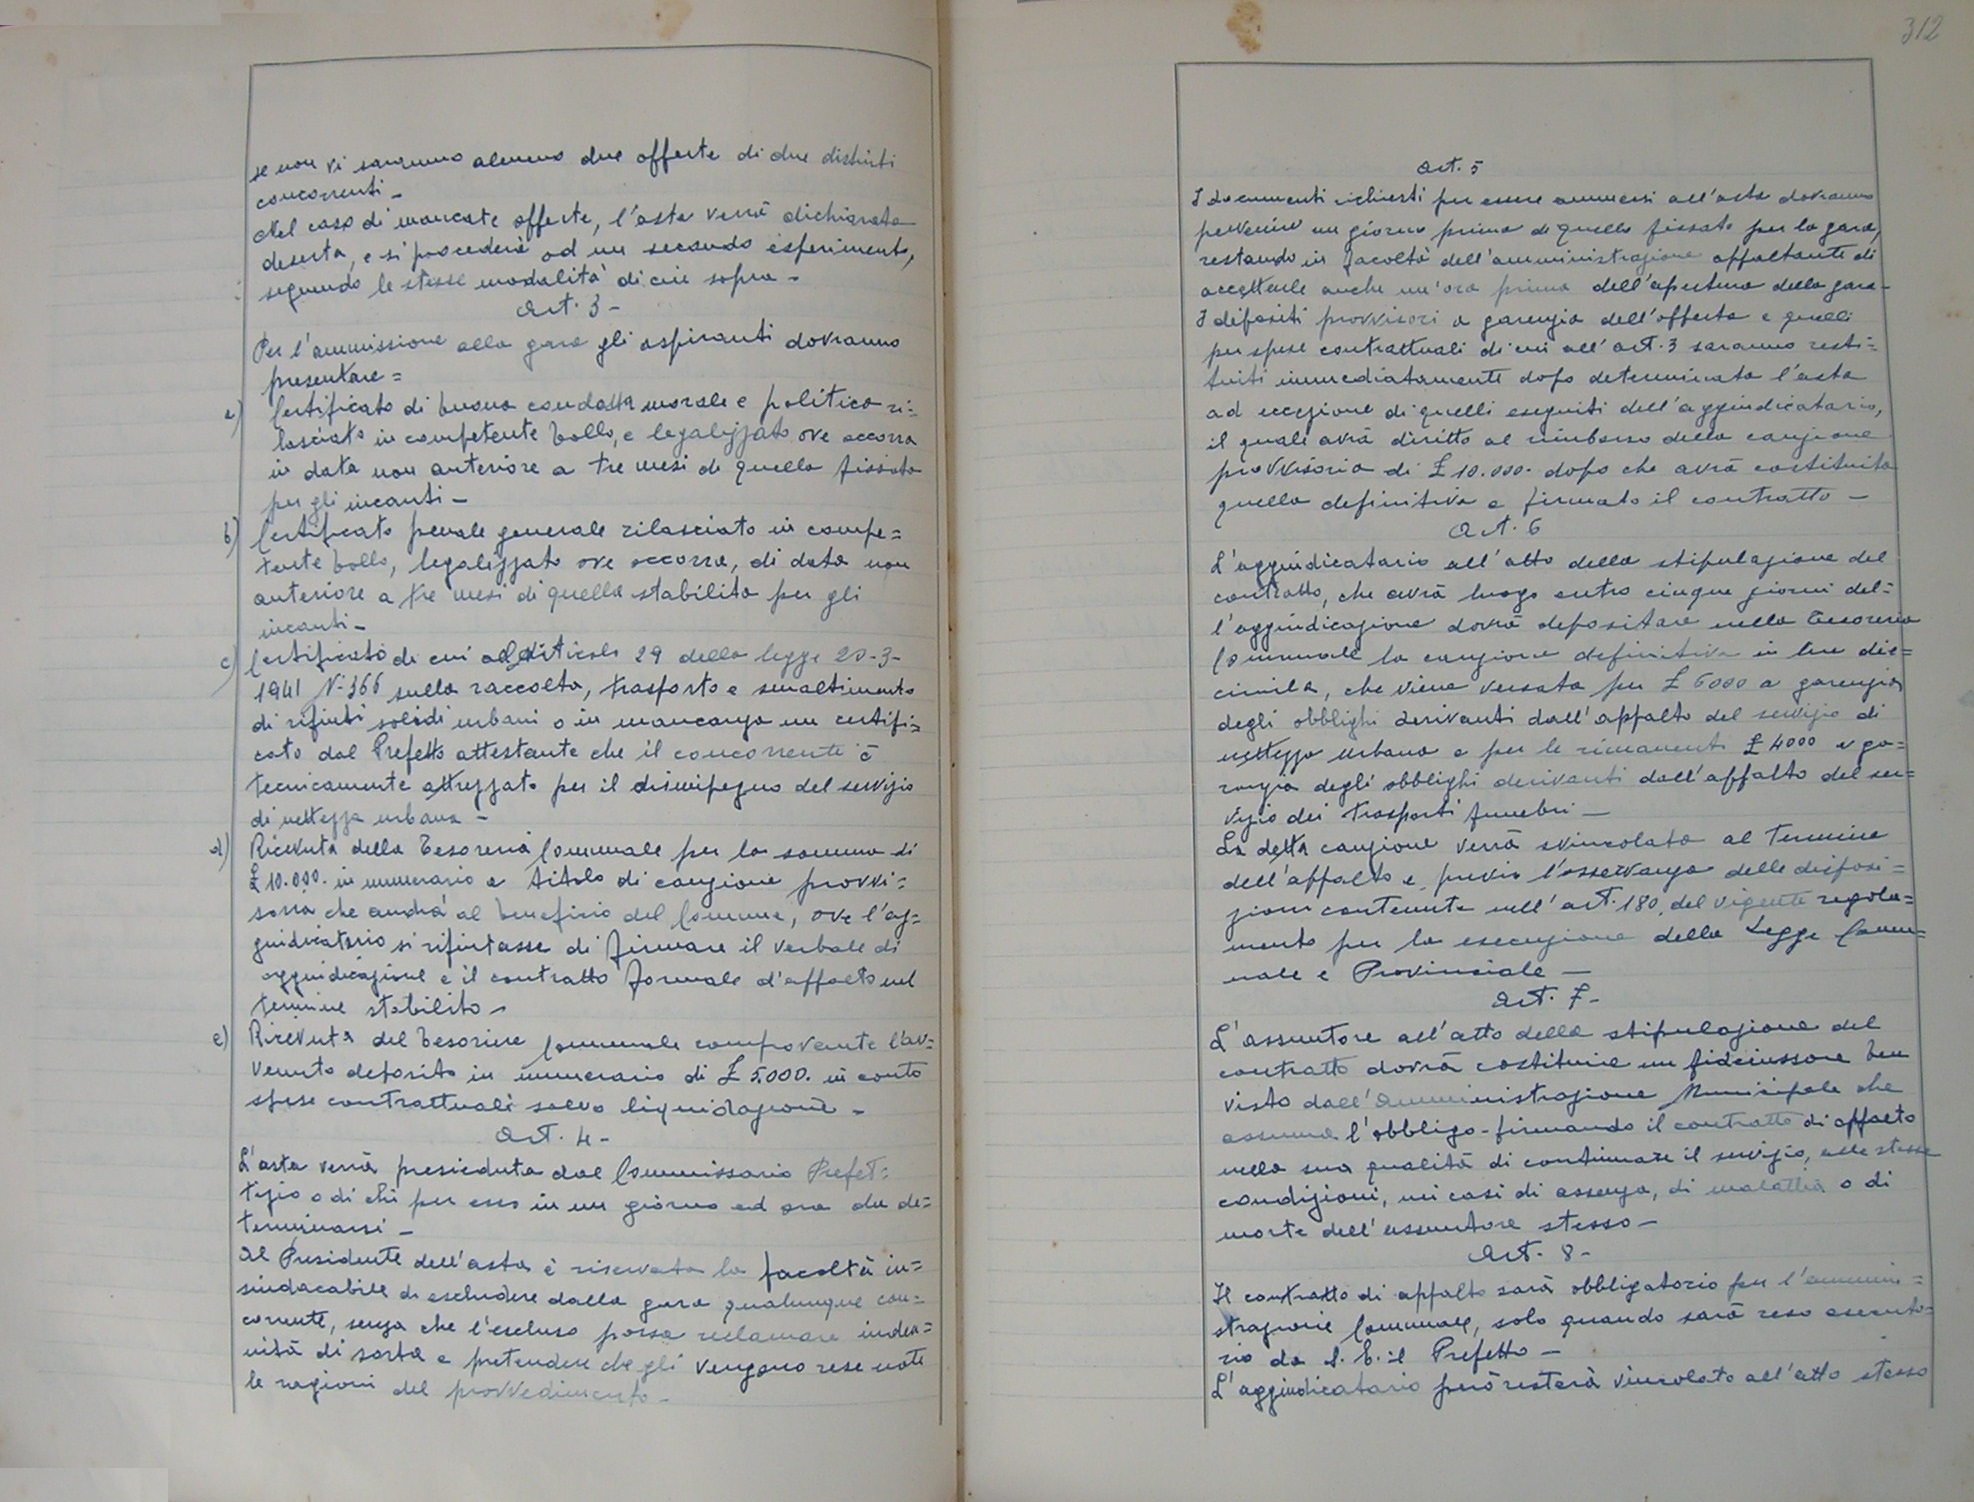 se non vi saranno almeno due offerte di due distinti
concorrenti -
Nel caso di mancate offerte, l'asta verrà dichiarata
deserta, e si procederà ad un secondo esperimento,
seguendo le stesse modalità di cui sopra -
Art. 3 -
Per l'ammissione alla gara gli aspiranti dovranno
presentare =
a) Certificato di buona condotta morale e politica ri=
lasciato in competente bollo, e legalizzato ove occorra
in data non anteriore a tre mesi di quella fissata
per gli incanti -
b) Certificato penale generale rilasciato in compe=
tente bollo, legalizzato ove occorra, di data non
anteriore a tre mesi di quella stabilita per gli
incanti -
c) Certificato di cui all'articolo 29 della legge 20-3-
1941 N. 366 sulla raccolta, trasporto e smaltimento
di rifiuti solidi urbani o in mancanza un certifi=
cato dal Prefetto attestante che il concorrente è
tecnicamente attrezzato per il disimpegno del servizio
di nettezza urbana -
d) Ricevuta della Tesoreria Comunale per la somma di
£ 10.000. in numerario a titolo di cauzione provvi=
soria che andrà al beneficio del Comune, ove l'ag=
giudicatario si rifiutasse di firmare il verbale di
aggiudicazione e il contratto formale d'appalto nel
termine stabilito -
e) Ricevuta del Tesoriere Comunale comprovante l'av=
venuto deposito in numerario di £ 5.000. in conto
spese contrattuali salvo liquidazione -
Art. 4 -
L'asta verrà presieduta dal Commissario Prefet=
tizio o di chi per esso in un giorno ed ora da de=
terminarsi -
Al Presidente dell'asta è riservata la facoltà in=
sindacabile di escludere dalla gara qualunque con=
corrente, senza che l'escluso possa reclamare inden=
nità di sorta e pretendere che gli vengano rese note
le ragioni del provvedimento -
312
Art. 5
I documenti richiesti per essere ammessi all'asta dovranno
pervenire un giorno prima di quello fissato per la gara,
restando in facoltà dell'amministrazione appaltante di
accettarle anche un'ora prima dell'apertura della gara -
I depositi provvisori a garanzia dell'offerta e quelli
per spese contrattuali di cui all'art. 3 saranno resti=
tuiti immediatamente dopo determinata l'asta
ad eccezione di quelli eseguiti dell'aggiudicatario,
il quale avrà diritto al rimborso della cauzione
provvisoria di £ 10.000. dopo che avrà costituita
quella definitiva e firmato il contratto -
Art. 6
L'aggiudicatario all'atto della stipulazione del
contratto, che avrà luogo entro cinque giorni del=
l'aggiudicazione dovrà depositare nella Tesoreria
Comunale la cauzione definitiva in lire die=
cimila, che viene versata per £ 6000 a garanzia
degli obblighi derivanti dall'appalto del servizio di
nettezza urbana e per le rimanenti £ 4000 a ga=
ranzia degli obblighi derivanti dall'appalto del ser=
vizio dei trasporti funebri -
La detta cauzione verrà svincolata al termine
dell'appalto e, previa l'osservanza delle disposi=
zioni contenute nell'art. 180, del vigente regola=
mento per la esecuzione della Legge Comu=
nale e Provinciale -
Art. 7 -
L'assuntore all'atto della stipulazione del
contratto dovrà costituire un fideiussore ben
visto dall'Amministrazione Municipale che
assuma l'obbligo - firmando il contratto di appalto
nella sua qualità di continuare il servizio, alle stesse
condizioni, nei casi di assenza, di malattia o di
morte dell'assuntore stesso -
Art. 8 -
Il contratto di appalto sarà obbligatorio per l'ammini=
strazione Comunale, solo quando sarà reso esecuto=
rio da S. E. il Prefetto -
L'aggiudicatario però resterà vincolato all'atto stesso